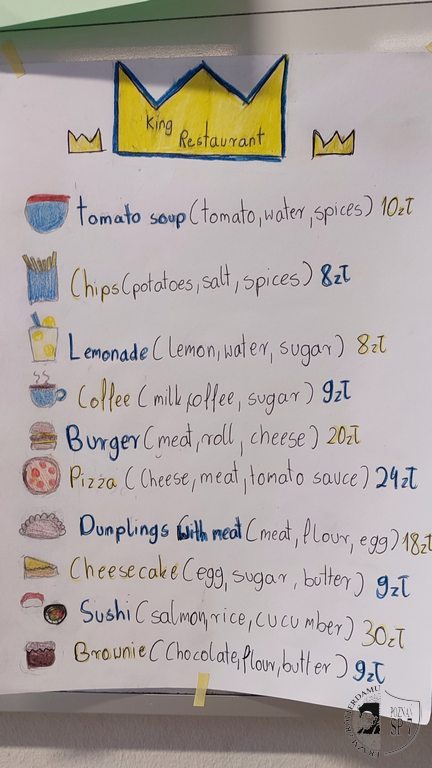 King
Restaurant
tomato soup (tomato, water, spices) 10zł
Chips (potatoes, salt, spices) 8zł
Lemonade (lemon, water, sugar) 8zł
Coffee (milk, coffee, sugar) 9zł
Burger (meat, roll, cheese) 20zł
Pizza (Cheese, meat, tomato sauce) 24zł
Dumplings With meat (meat, flour, egg) 18zł
Cheesecake (egg, sugar, butter) 9zł
Sushi (salmon, rice, cucumber) 30zł
Brownie (Chocolate, flour, butter) 9zł
POZNAŃ
SP 7